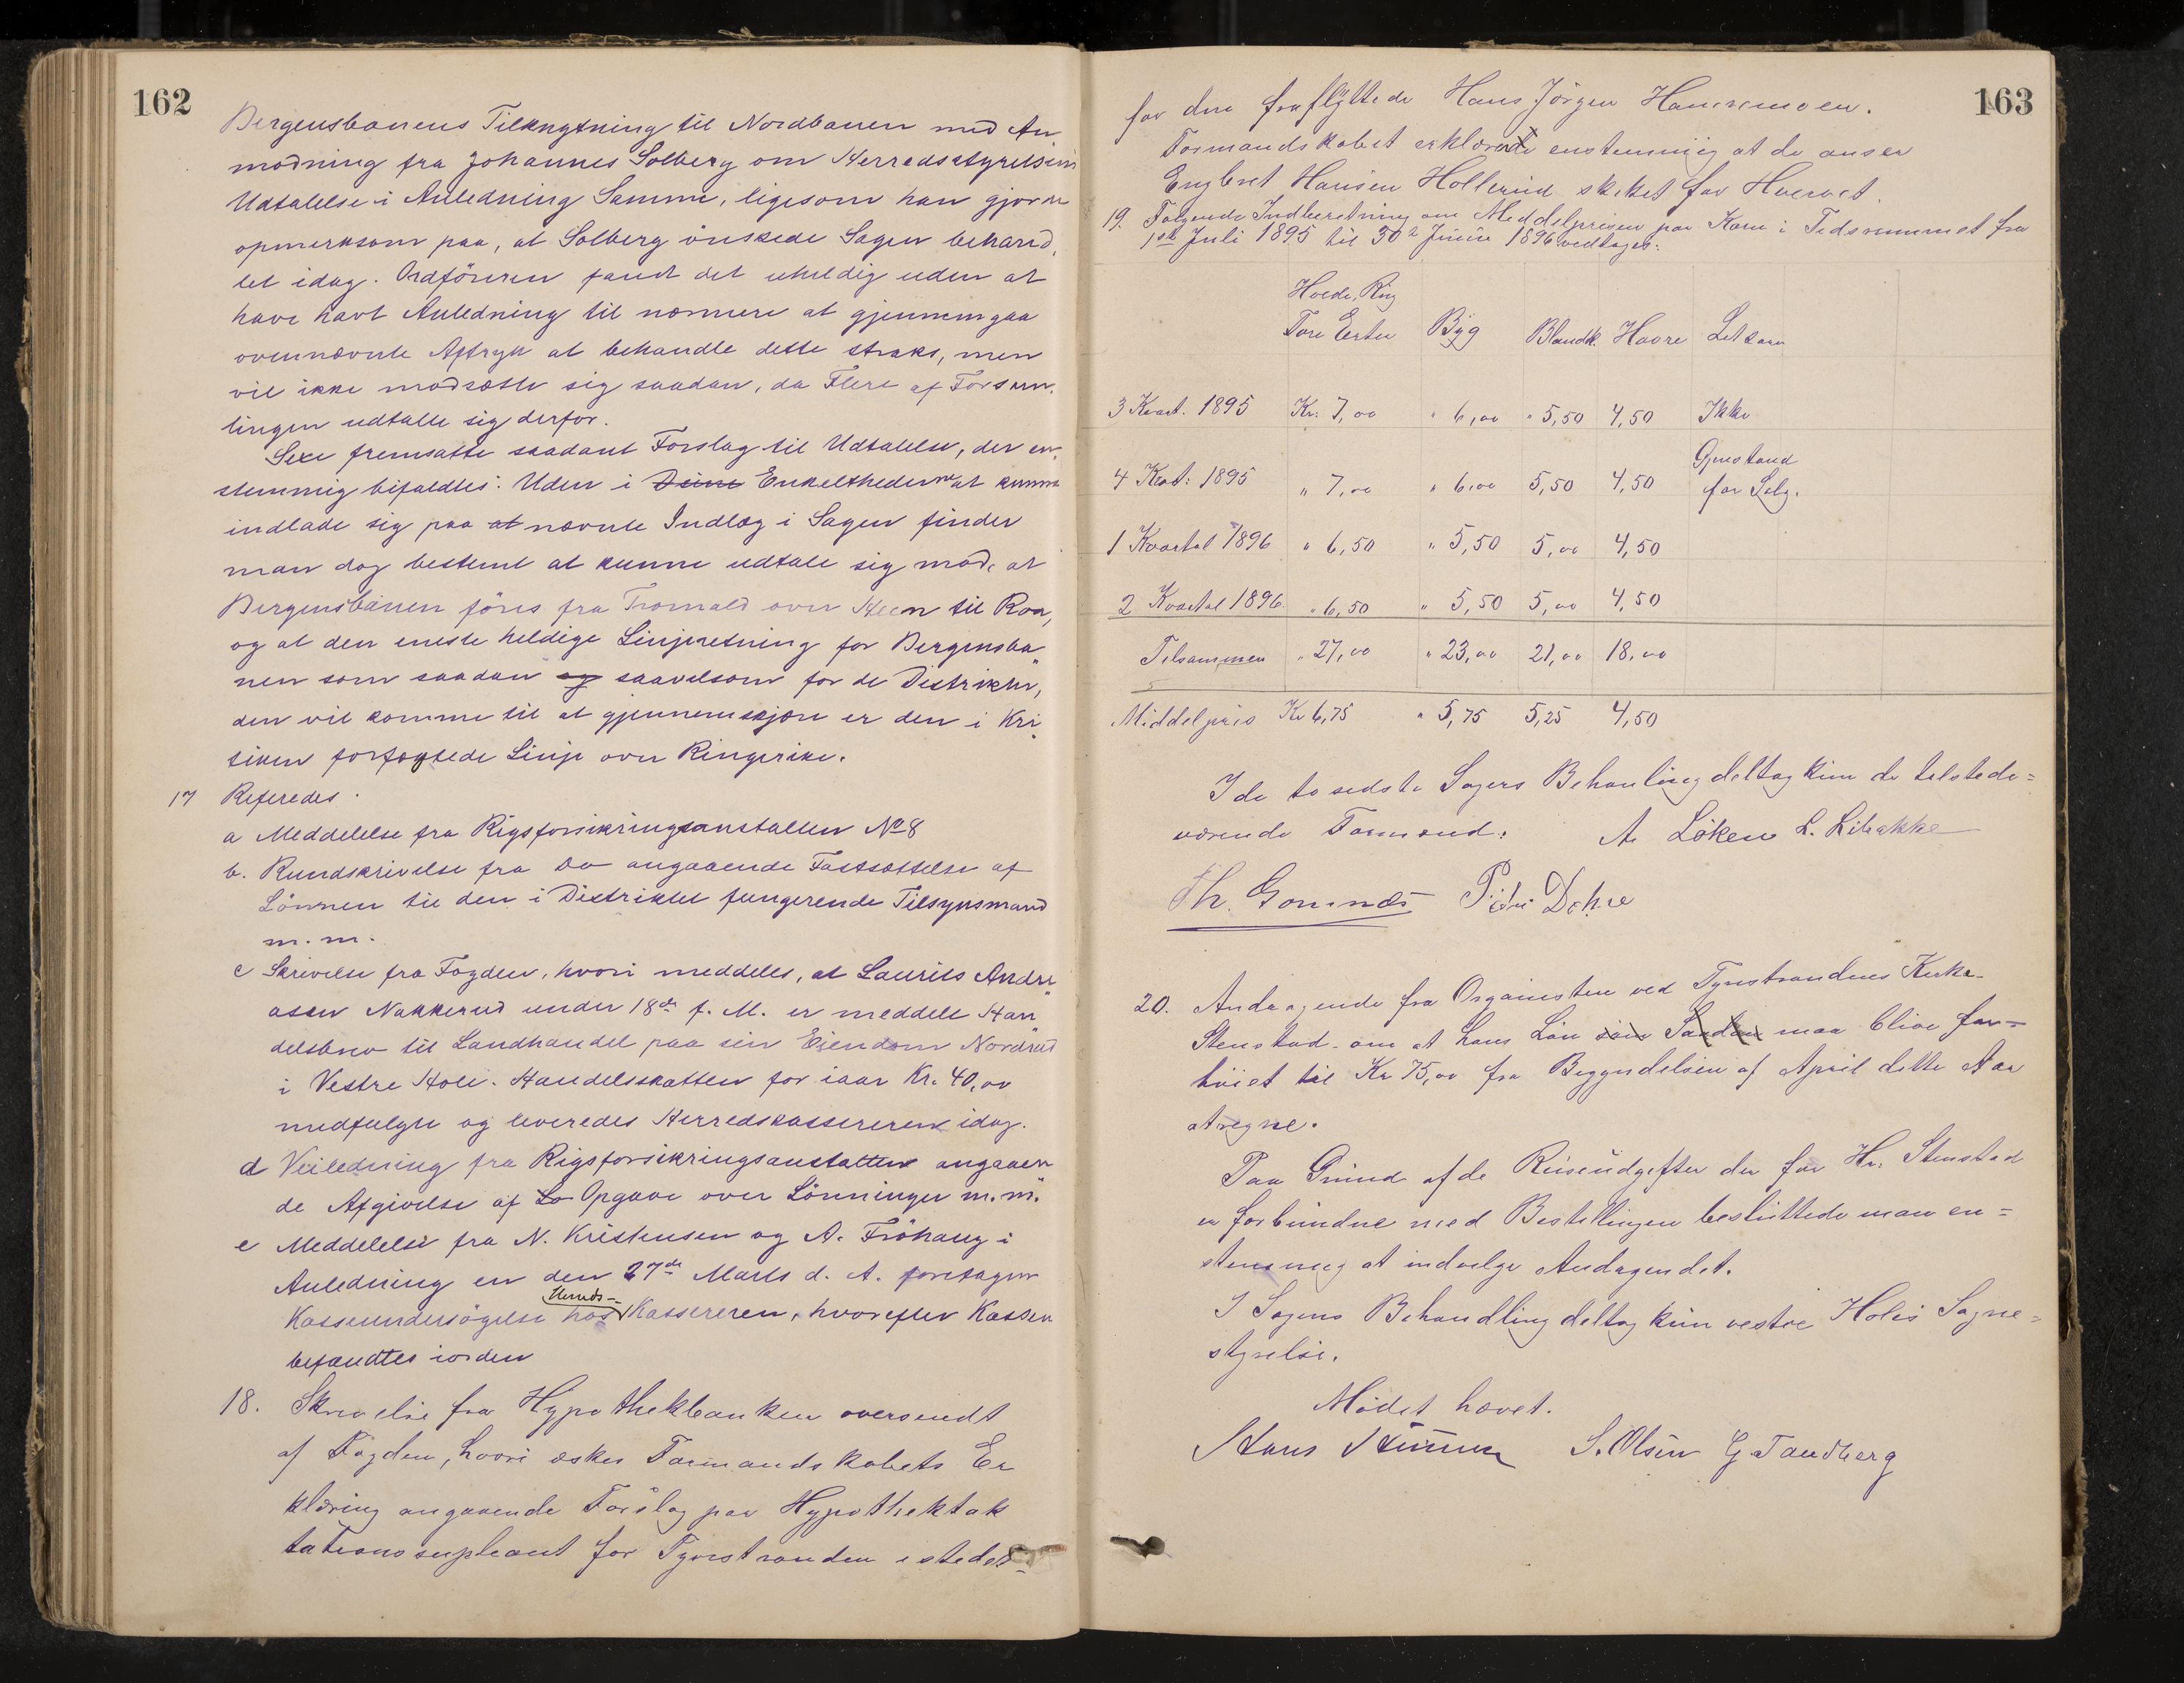 162
Bergensbanens Tilknytning til Nordbanen med An
modning fra Johannes Solberg om Herredsstyrelsens
Udtalelse i Anledning Samme, ligesom han gjorde
opmerksom paa, at Solberg önskede Sagen behand,
let idag. Ordföreren fandt det uheldig uden at
have havt Anledning til nærmere at gjennemgaa
ovennævnte Aftryk at behandle dette straks, men
vil ikke modsætte sig saadan, da Flere af Forsam,
lingen udtalte sig derfor.
Sexe fremsatte saadant Forslag til Udtalelse, der en,
stemmig bifaldtes: Uden i Enkelthederne at kunne
indlade sig paa at nævnte Indlæg i Sagen finder
man dog bestemt at kunne udtale sig mod, at
Bergensbanen föres fra Tromald over Heen til Roa,
og at den eneste heldige Linjeretning for Bergensba„
nen som saadan og saavelsom for de Distrikter,
den vil komme til at gjennemskjære er den i Kri„
tiken forfægtede Linje over Ringerike.
17 Referedes.
a Meddelelse fra Rigsforsikringsanstalten No 8
b. Rundskrivelse fra Do angaaende Fastsættelse af
Lönnen til den i Distriktet fungerende Tilsynsmand
m. m.
c Skrivelse fra Fogden, hvori meddeles, at Laurits Andre„
asen Nakkerud under 18de f. M. er meddelt Han„
delsbrev til Landhandel paa sin Eiendom Nordrud
i Vestre Hole. Handelsskatten for iaar Kr. 40,00
medfulgte og leveredes Herredskassereren idag.
d Veiledning fra Rigsforsikringsanstalten angaaen
de Afgivelse af Lo Opgave over Lönninger m.m.
e Meddelelse fra N. Kristensen og A. Fröhaug i
Anledning en den 27de Marts d. A. foretagen
Herreds-
Kasseundersögelse hos Kassereren, hvorefter Kassen
befandtes iorden
18. Skrivelse fra Hypothekbanken oversendt
af Fogden, hvori æskes Formandskabets Er
klæring angaaende Forslag paa Hypothektak
tationssupleant for Tyristranden istedet-
163
for den fraflyttede Hans Jörgen Hanremoen.
Formandskabet erklærede enstemmig at de anser
Engbret Hansen Hollerud skiket for Hvervet.
19. Følgende Indberetning om Meddelprisen paa Korn i Tidsrummet fra
1ste Juli 1895 til 30te Junie 1896 vedtages:
Hvede, Rug
Tore Erter Byg Blandk. Havre Letkorn
3 Kvart. 1895 Kr. 7,00 „ 6,00 „ 5,50 4,50 Ikke
Gjenstand
4 Kvat: 1895 „ 7,00 „ 6,00 5,50 4,50 for Salg.
1 Kvartal 1896 „ 6,50 „ 5,50 5,00 4,50
2 Kvartal 1896 „ 6,50 „ 5,50 5,00 4,50
Tilsammen „ 27,00 „ 23,00 21,00 18,00
Middelpris Kr 6,75 „ 5,75 5,25 4,50
I de to sidste Sagers Behanling deltog kun de tilstede=
værende Formænd. A. Löken L. Libakke
Th. Gomnæs Peder Dehre
20. Andragende fra Organisten ved Tyristrandens Kirke
Stenstad om at hans Lön som Saadan maa blive for=
höiet til Kr 75,00 fra Begyndelsen af April dette Aar
atregne.
Paa Grund af de Reiseudgifter der for Hr. Stenstad
er forbundne med Bestillingen besluttede man en=
stemmig at indvilge Andragendet.
I Sagens Behandling deltog kun vestre Holes Sogne=
styrelse.
Mödet hævet.
Hans S. Olsen G Tandberg